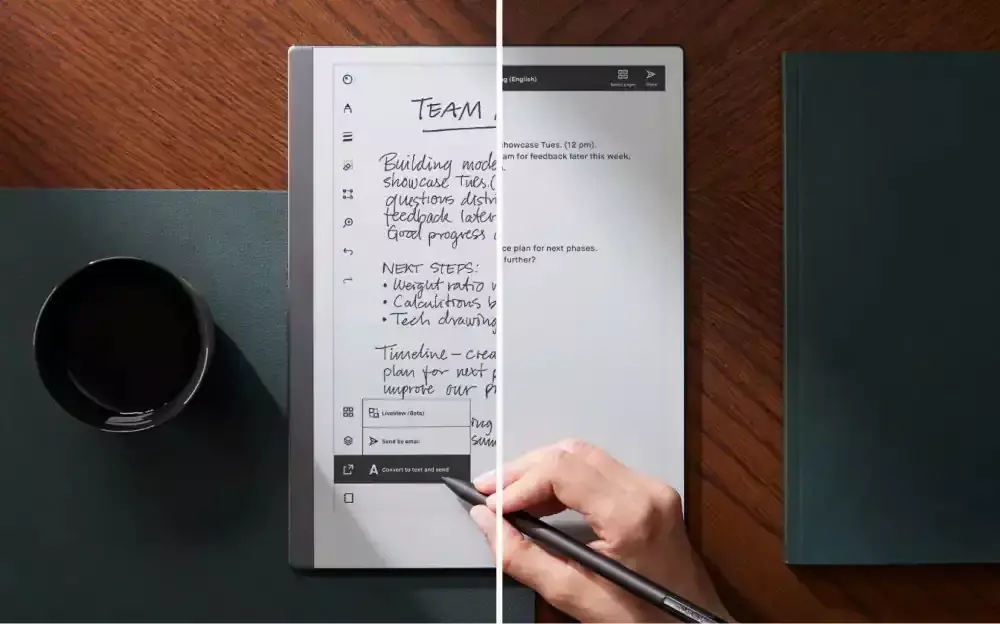 TEAM
Building mode
showcase Tues.(
questions distri
feedback later
Good progress
NEXT STEPS:
• Weight ratio
• Calculations b
• Tech drawing
Timeline – crea
plan for next p
improve our pr
ing
sum
LiveView (Beta)
Send by email
Convert to text and send
g (English)
Select pages
Share
howcase Tues. (12 pm).
am for feedback later this week.
ce plan for next phases.
further?